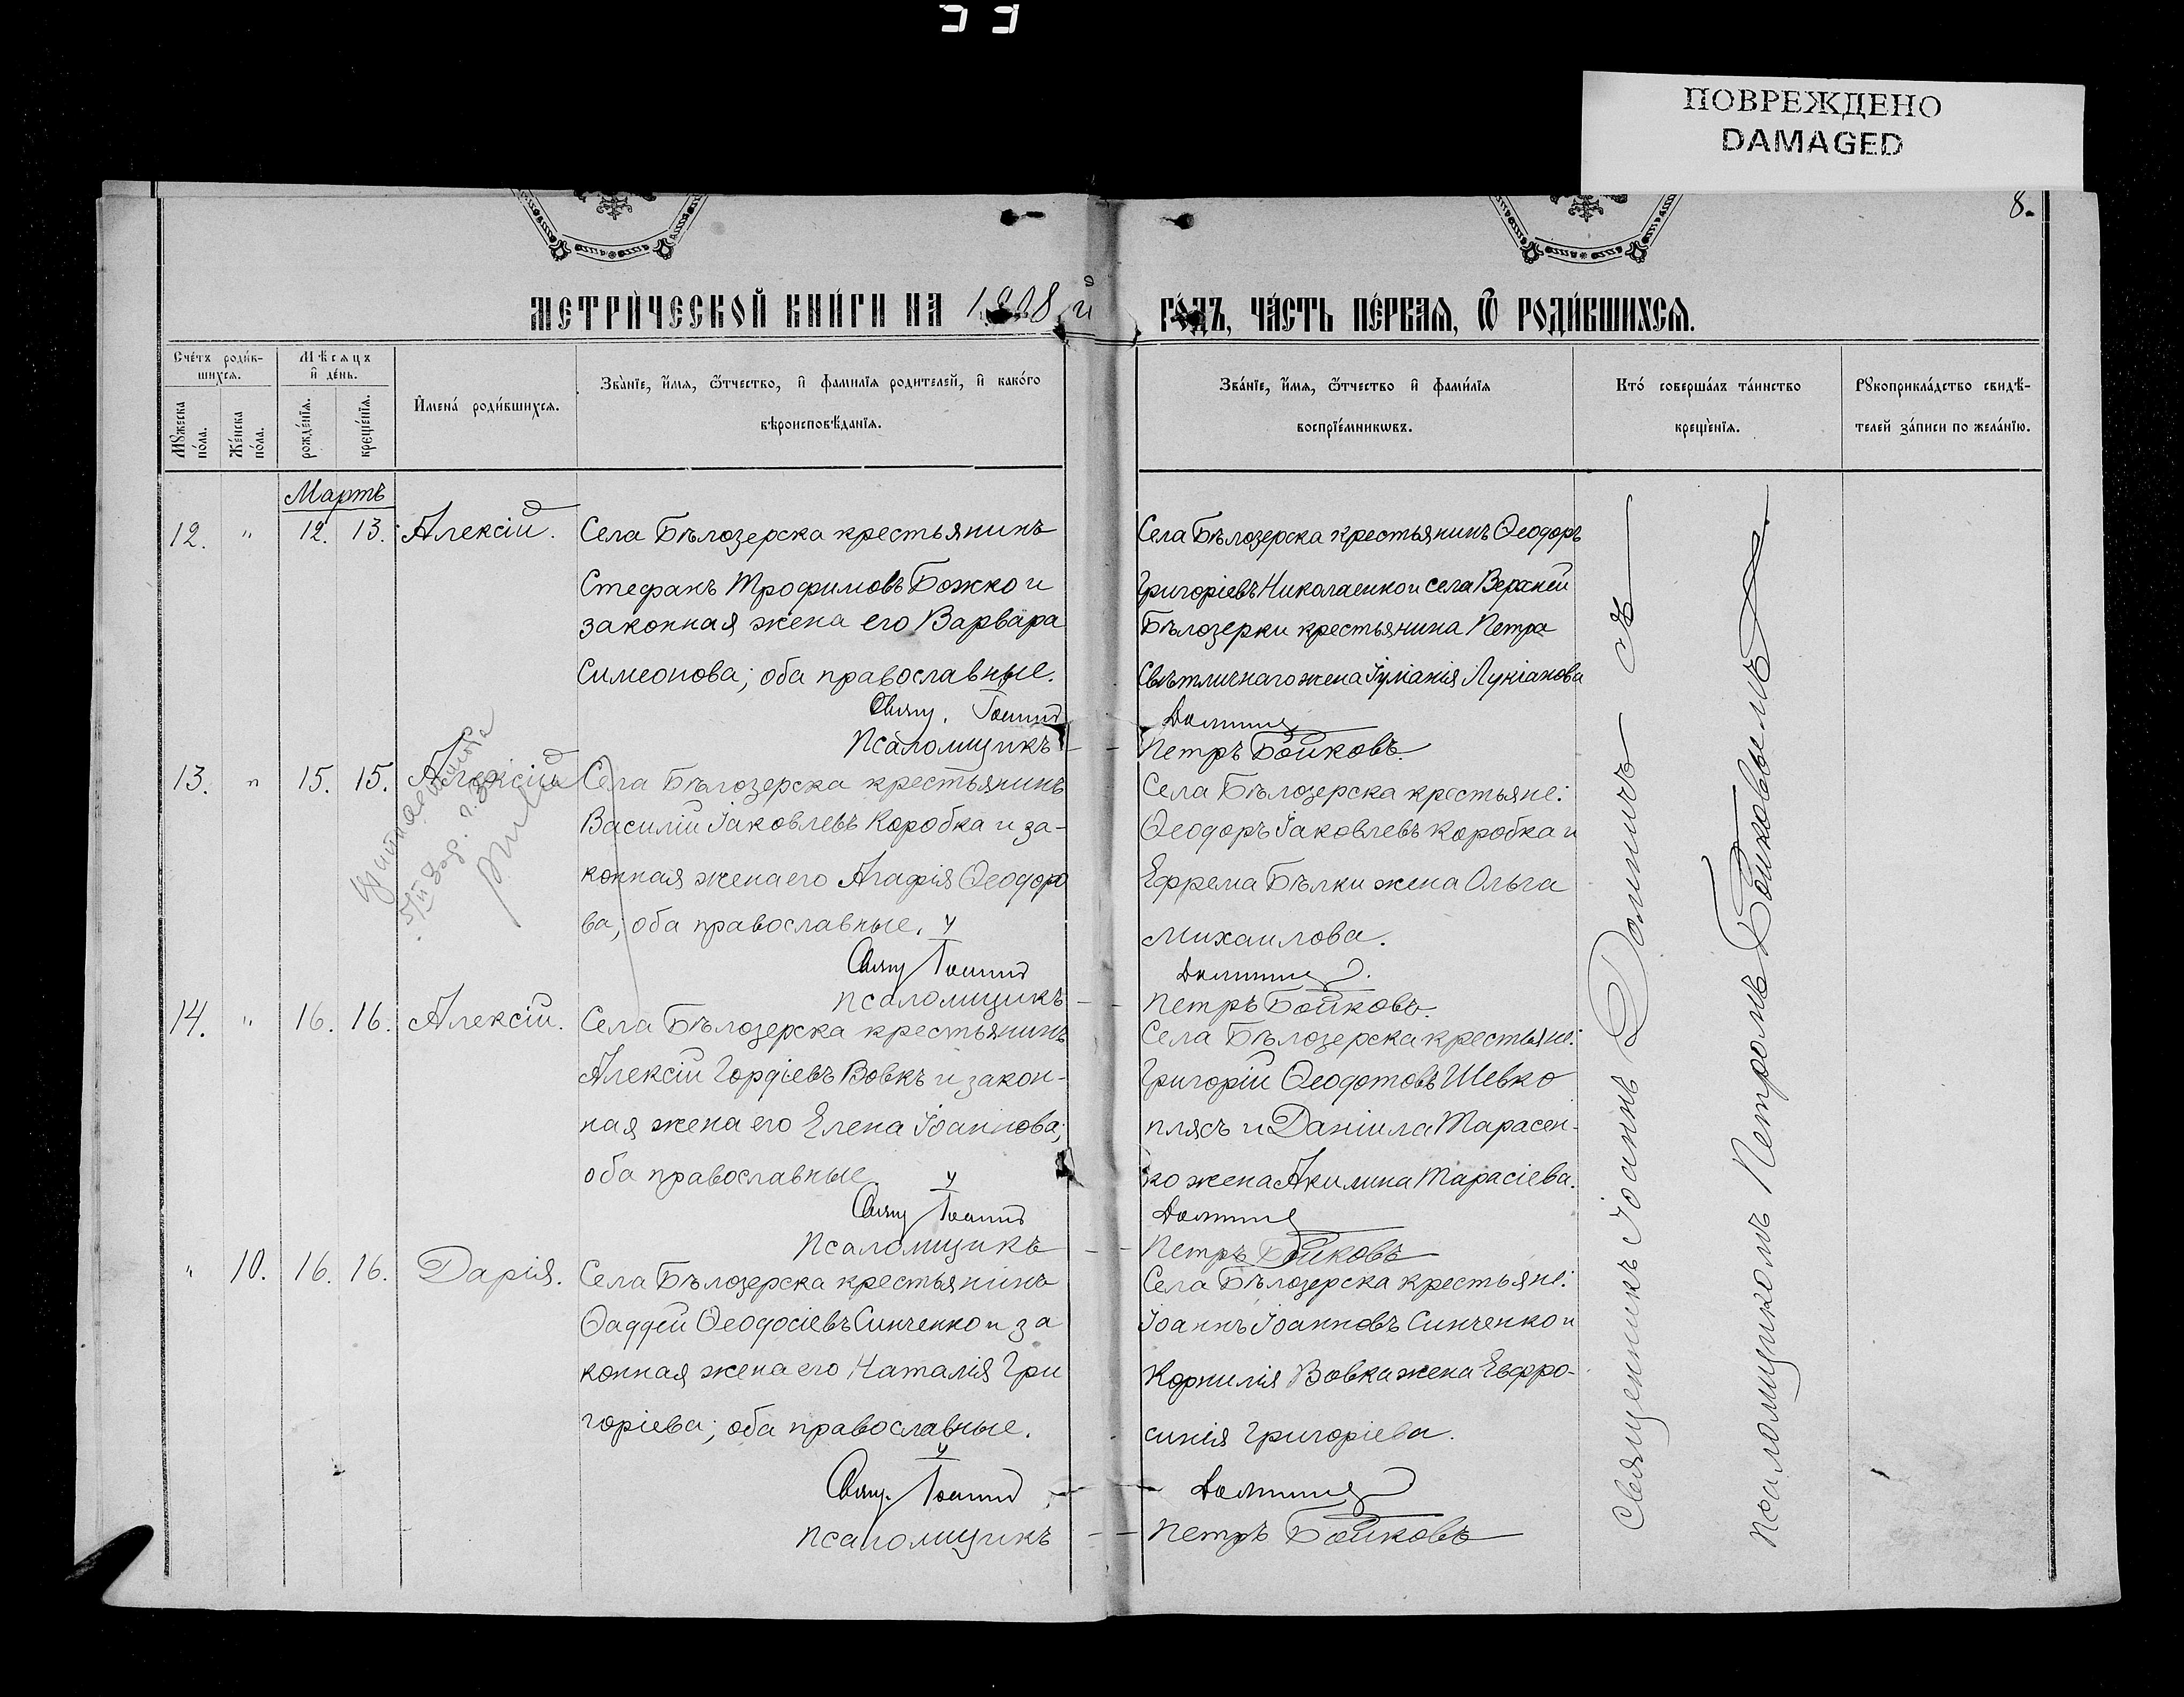 ПОВРЕЖДЕНО
DAMAGED
8.
МЕТРИ́ЧЕСКОЙ КНИ́ГИ НА 18 8й ГО́ДЪ, ЧА́СТЬ ПЕ́РВАѦ, Ѿ РОДИ́ВШИХСѦ.
Сче́тъ роди́в-
шихсѧ.
Мѣ́сѧцъ
и҆ де́нь.
Мꙋжеска по́ла.
Же́нска по́ла.
рожде́нїѧ.
креще́нїѧ.
И҆мена́ роди́вшихсѧ.
Зва́нїе, и҆́мѧ, ѻ҆́тчество, и҆ фами́лїѧ роди́телей, и҆ како́го
вѣроисповѣ́данїѧ.
Зва́нїе, и҆́мѧ, ѻ҆́тчество и҆ фами́лїѧ
воспрїе́мникѡвъ.
Кто́ соверша́лъ та́инство
креще́нїѧ.
Рꙋкоприкла́дство свидѣ́-
телей за́писи по жела́нїю.
Мартъ
12. " 12. 13. Алексій.
Села Бѣлозерска крестьянинъ
Стефанъ Трофимовъ Божко и
законная жена его Варвара
Симеонова; оба православные.
Свящ. Іоаннъ
Псаломщикъ
Села Бѣлозерска крестьянинъ Ѳеодоръ
Григоріевъ Николаенко и села Верхней
Бѣлозерки крестьянина Петра
Свѣтличнаго жена Іуліанія Лукіанова
Долинич
Петръ Бойковъ.
13. " 15. 15. Алексій
Села Бѣлозерска крестьянинъ
Василій Іаковлевъ Коробка и за-
конная жена его Агафія Ѳеодоро
ва; оба православные.
Свящ Іоаннъ
псаломщикъ
Села Бѣлозерска крестьяне:
Ѳеодоръ Іаковлевъ Коробка и
Ефрема Бѣлки жена Ольга
Михаилова.
Долинич.
Петръ Бойковъ.
14. " 16. 16. Алексій.
Села Бѣлозерска крестьянинъ
Алексій Гордіевъ Вовкъ и закон-
ная жена его Елена Іоаннова;
оба православные.
Свящ Іоаннъ
Псаломщикъ
Села Бѣлозерска крестьяне:
Григорій Ѳеодотовъ Шевко
плясъ и Даніила Тарасен-
ко жена Акилина Тарасіева.
Долинич
Петръ Бойковъ
" 10. 16. 16. Дарія.
Села Бѣлозерска крестьянинъ
Ѳаддей Ѳеодосіевъ Синченко и за
конная жена его Наталія Гри
горіева; оба православные.
Свящ. Іоаннъ
псаломщикъ
Села Бѣлозерска крестьяне:
Іоаннъ Іоанновъ Синченко и
Корнилія Вовка жена Евфро-
синія Григоріева.
Долинич
Петръ Бойковъ
Священникъ Іоаннъ Долиничъ съ
Псаломщикомъ Петромъ Бойковымъ.